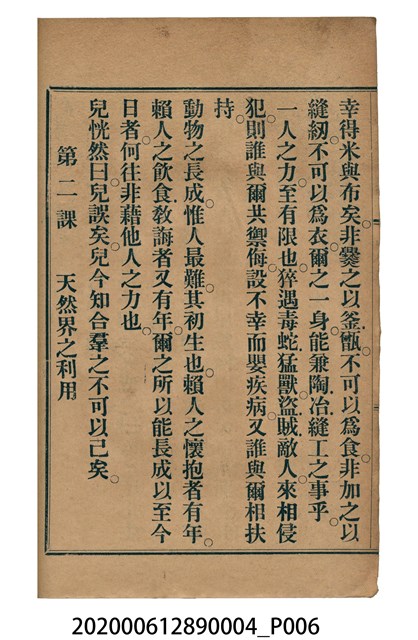 幸得米與布矣。非爨之以釜甑。不可以爲食。非加之以
縫紉。不可以爲衣。爾之一身。能兼陶冶縫工之事乎。
一人之力。至有限也。猝遇毒蛇猛獸。盜賊敵人。來相侵
犯。則誰與爾共禦侮。設不幸而嬰疾病。又誰與爾相扶
持。
動物之長成。惟人最難。其初生也。賴人之懷抱者有年。
賴人之飲食教誨者又有年。爾之所以能長成以至今
日者。何往非藉他人之力也。
兒恍然曰。兒誤矣。兒今知合羣之不可以已矣。
第二課 天然界之利用
202000612890004_P006